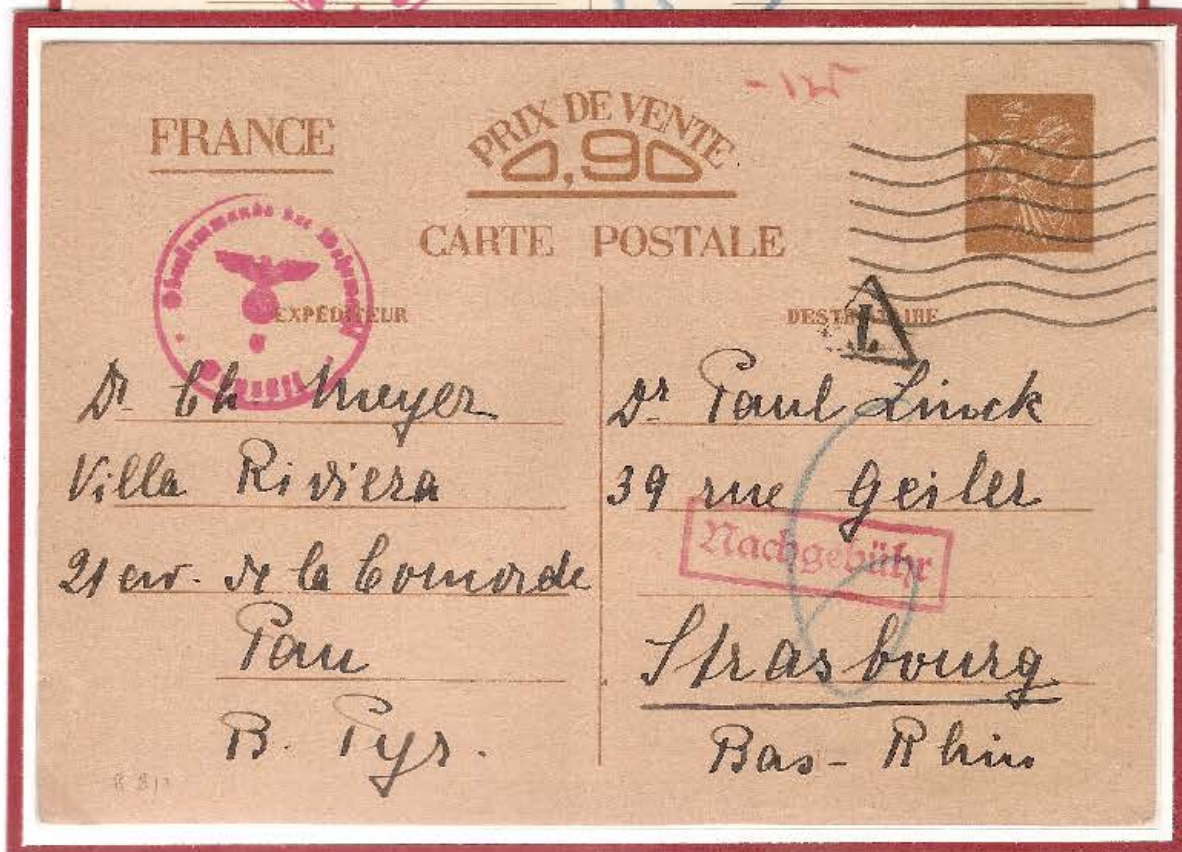 FRANCE
PRIX DE VENTE
0,90
CARTE POSTALE
Oberkommando der Wehrmacht
EXPÉDITEUR
Dr Ch Meyer
Villa Riviera
21 av. de la Concorde
Pau
B. Pyr.
DESTINATAIRE
T
Dr Paul Linck
39 rue Geiler
Nachgebühr
Strasbourg
Bas-Rhin